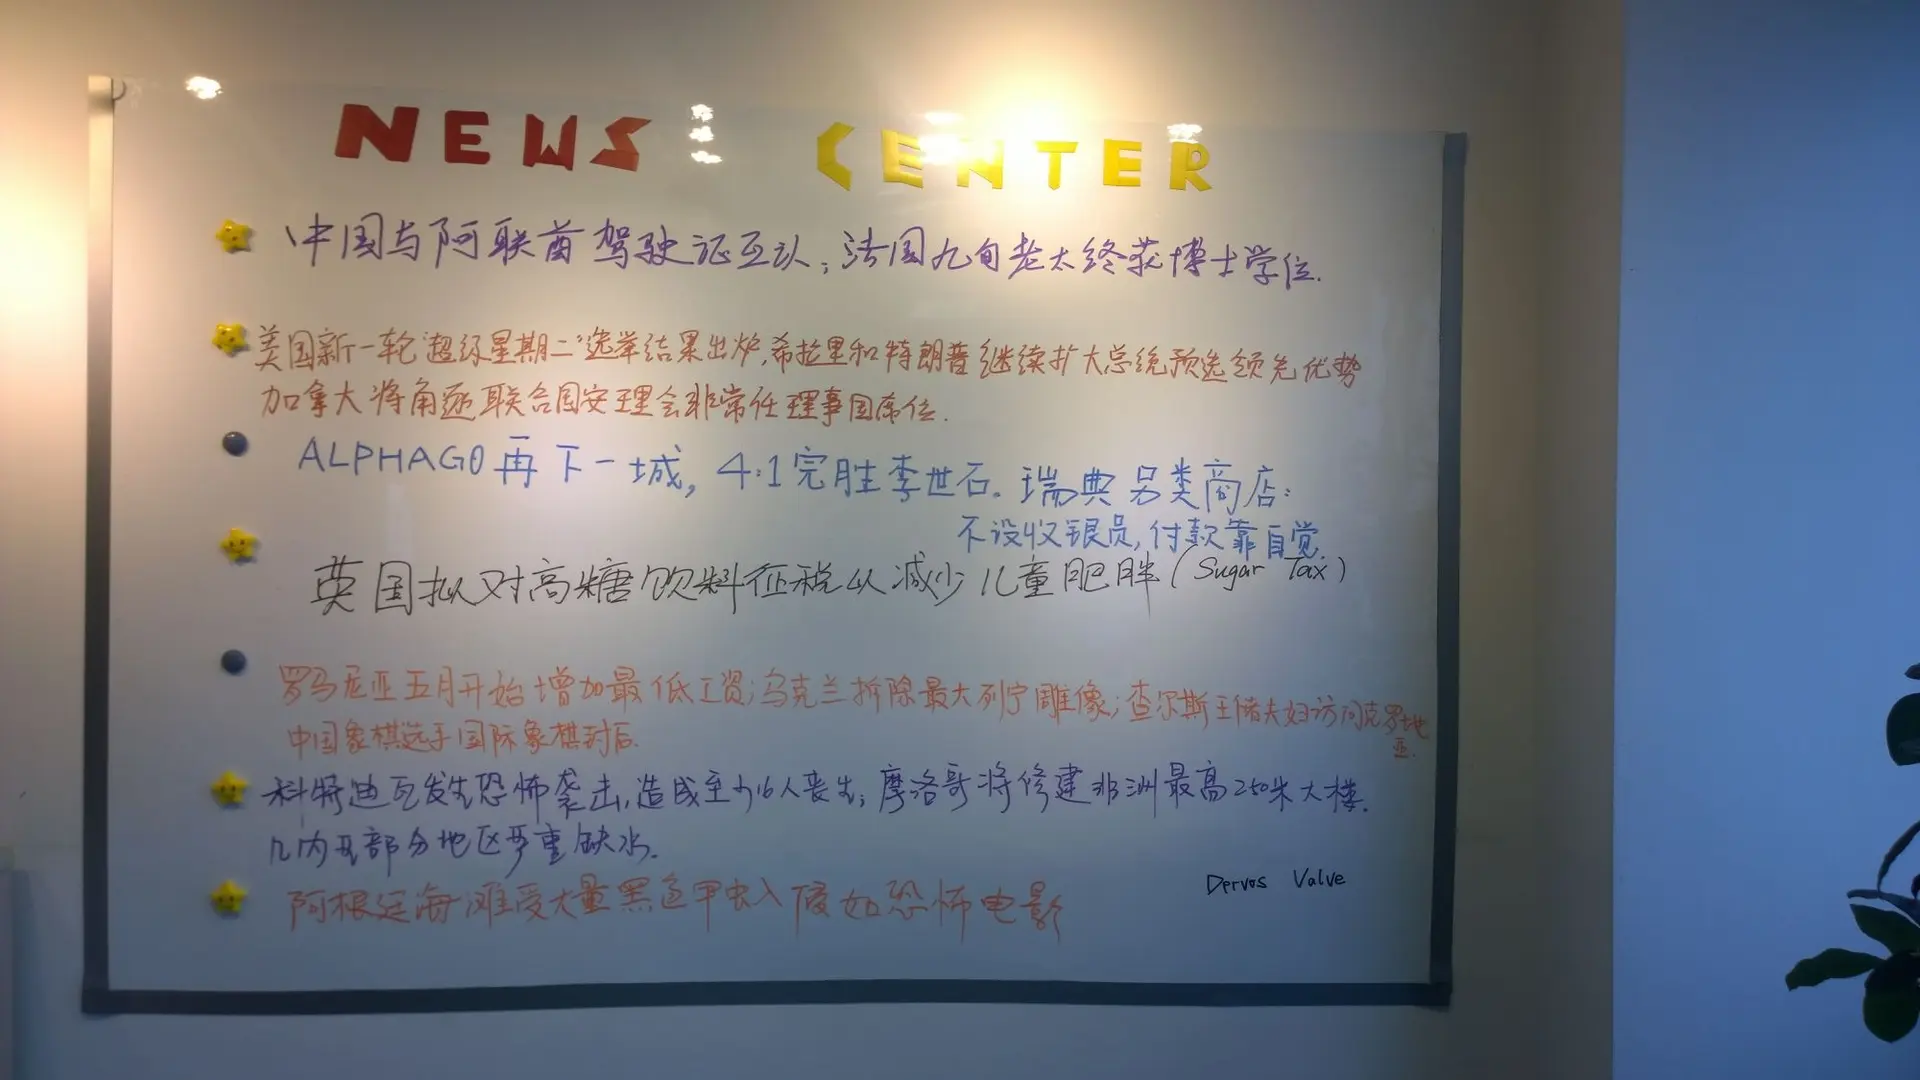 NEWS CENTER
中国与阿联酋驾驶证互认；法国九旬老太终获博士学位.
美国新一轮"超级星期二"选举结果出炉,希拉里和特朗普继续扩大总统预选领先优势
加拿大将角逐联合国安理会非常任理事国席位.
ALPHAGO再下一城, 4:1完胜李世石。瑞典另类商店:
不设收银员,付款靠自觉.
英国拟对高糖饮料征税以减少儿童肥胖(Sugar Tax)
罗马尼亚五月开始增加最低工资;乌克兰拆除最大列宁雕像;查尔斯王储夫妇访问克罗地亚.
中国象棋选手国际象棋封后.
科特迪瓦发生恐怖袭击,造成至少16人丧生;摩洛哥将修建非洲最高250米大楼.
几内亚部分地区严重缺水.
阿根廷海滩受大量黑色甲虫入侵如恐怖电影
Dervos Valve